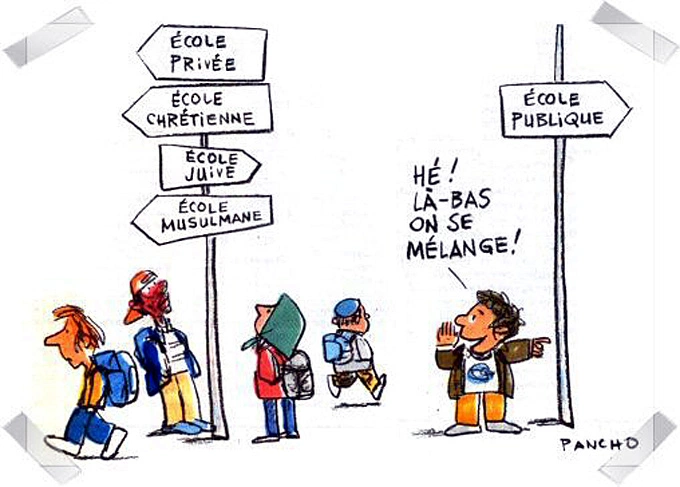 ÉCOLE
PRIVÉE
ÉCOLE
CHRÉTIENNE
ÉCOLE
JUIVE
ÉCOLE
MUSULMANE
ÉCOLE
PUBLIQUE
HÉ !
LÀ-BAS
ON SE
MÉLANGE !
PANCHO